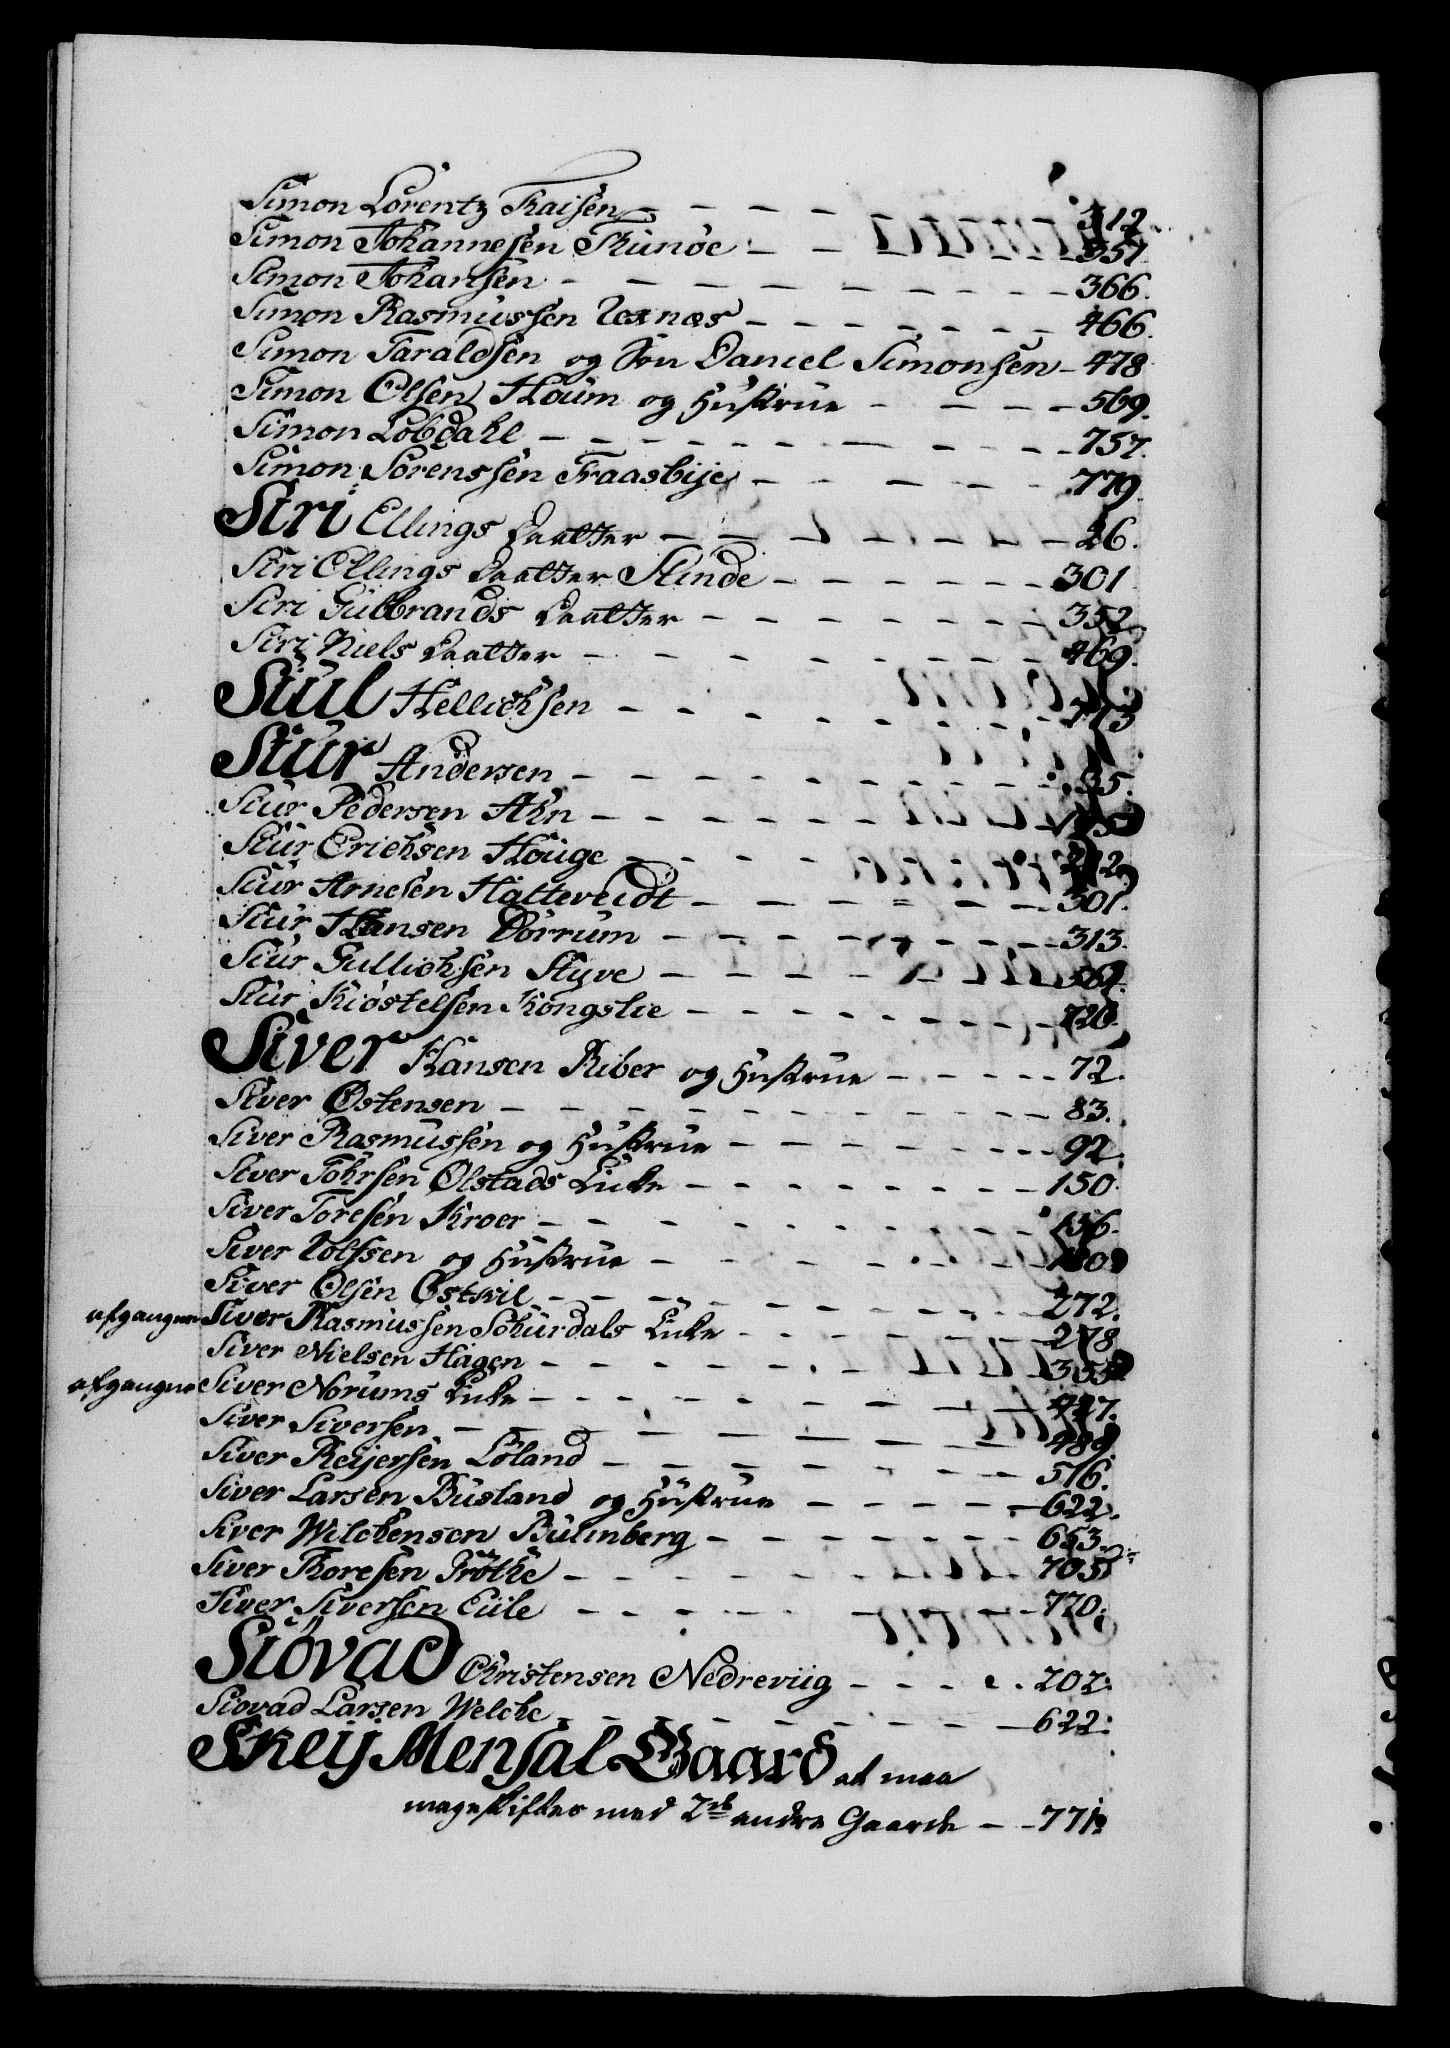 Simon Lorentz Kaisen - - - - 312.
Simon Johannesen Kunøe - - 357.
Simon Johansen - - - - - - 366.
Simon Rasmussen Vexnæs - - - - - - 466.
Simon Taraldsen og Søn Daniel Simonsen - 478
Simon Olsen Houm og Hustrue - - - - 569.
Simon Lobdahl - - - - - - 757.
Simon Sørenssen Fraasbije - - - - 779.
Siri Ellings Daatter - - - - 26.
Siri Ellings Daatter Slinde - - - - - 301.
Siri Gulbrands Daatter - - - - - - 352.
Siri Niels Daatter - - - - - - 469.
Siul Hellichsen - - - - - - 773
Siur Andersen - - - - - - 35.
Siur Pedersen Ahn - - - - - -
Siur Erichsen Houge - - - - - 212.
Siur Arnesen Hattereidt - - - - - 301.
Siur Hansen Dørrum - - - - - - 313.
Siur Gullichsen Styve - - - - 567.
Siur Kiøstelsen Kongslie - - - - - - 720.
Siver Hansen Riber og Hustrue - - - - - 72.
Siver Østensen - - - - - - 83.
Siver Rasmussen og Hustrue - - - - - 92.
Siver Tohrsen Ølstads Enke - - - - - - 150.
Siver Toresen Kroer - - - - - - 156.
Siver Tolfsen og Hustrue - - - - - 180
Siver Olsen Østvil - - - - - - 272.
afgangne Siver Rasmussen Schurdals Enke - - - - 278
Siver Nielsen Hagen - - - - - 355
afgangne Siver Norums Enke - - - - - 447.
Siver Siversen - - - - - - 489.
Siver Reijersen Løland - - - - - - 576.
Siver Larsen Busland og Hustrue - - - - - 622.
Siver Wilchensen Bulinberg - - - - - 653.
Siver Thoresen Frøthe - - - - - - 705
Siver Siversen Eüle - - - - - - 770.
Siovad Christensen Nedreviig - - - - 202.
Siovad Larsen Welche - - - - - - 622.
Skeij Mensal Gaard at maa
mageskiftes med 2de andre Gaarde - - 771.